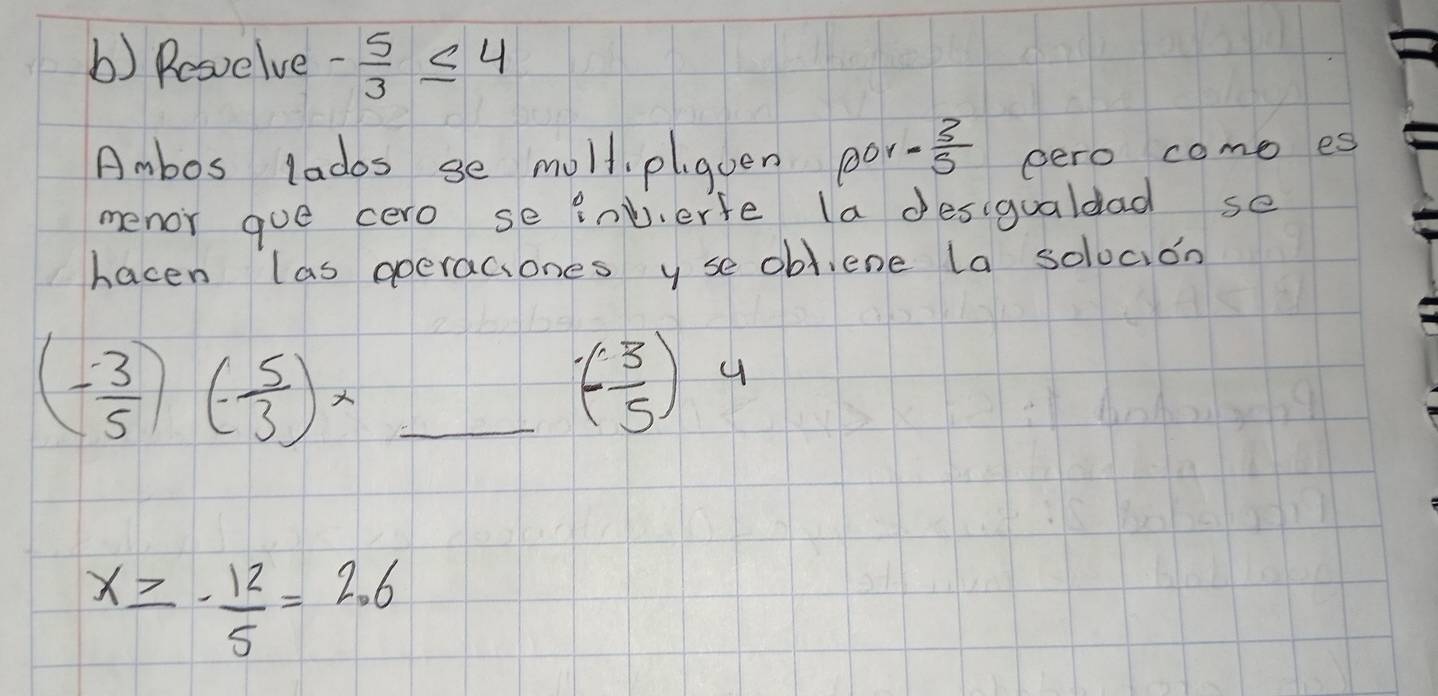 b) Resuelve - 5/3 ≤ 4
Ambos lados se multipliquen por - 3/5 pero como es
menor que cero se invierte la desigualdad se
hacen las operaciones y se obtiene la solución
(-3/5) (-5/3) x ____ (-3/5) 4
x ≥ - 12/5 = 2.6